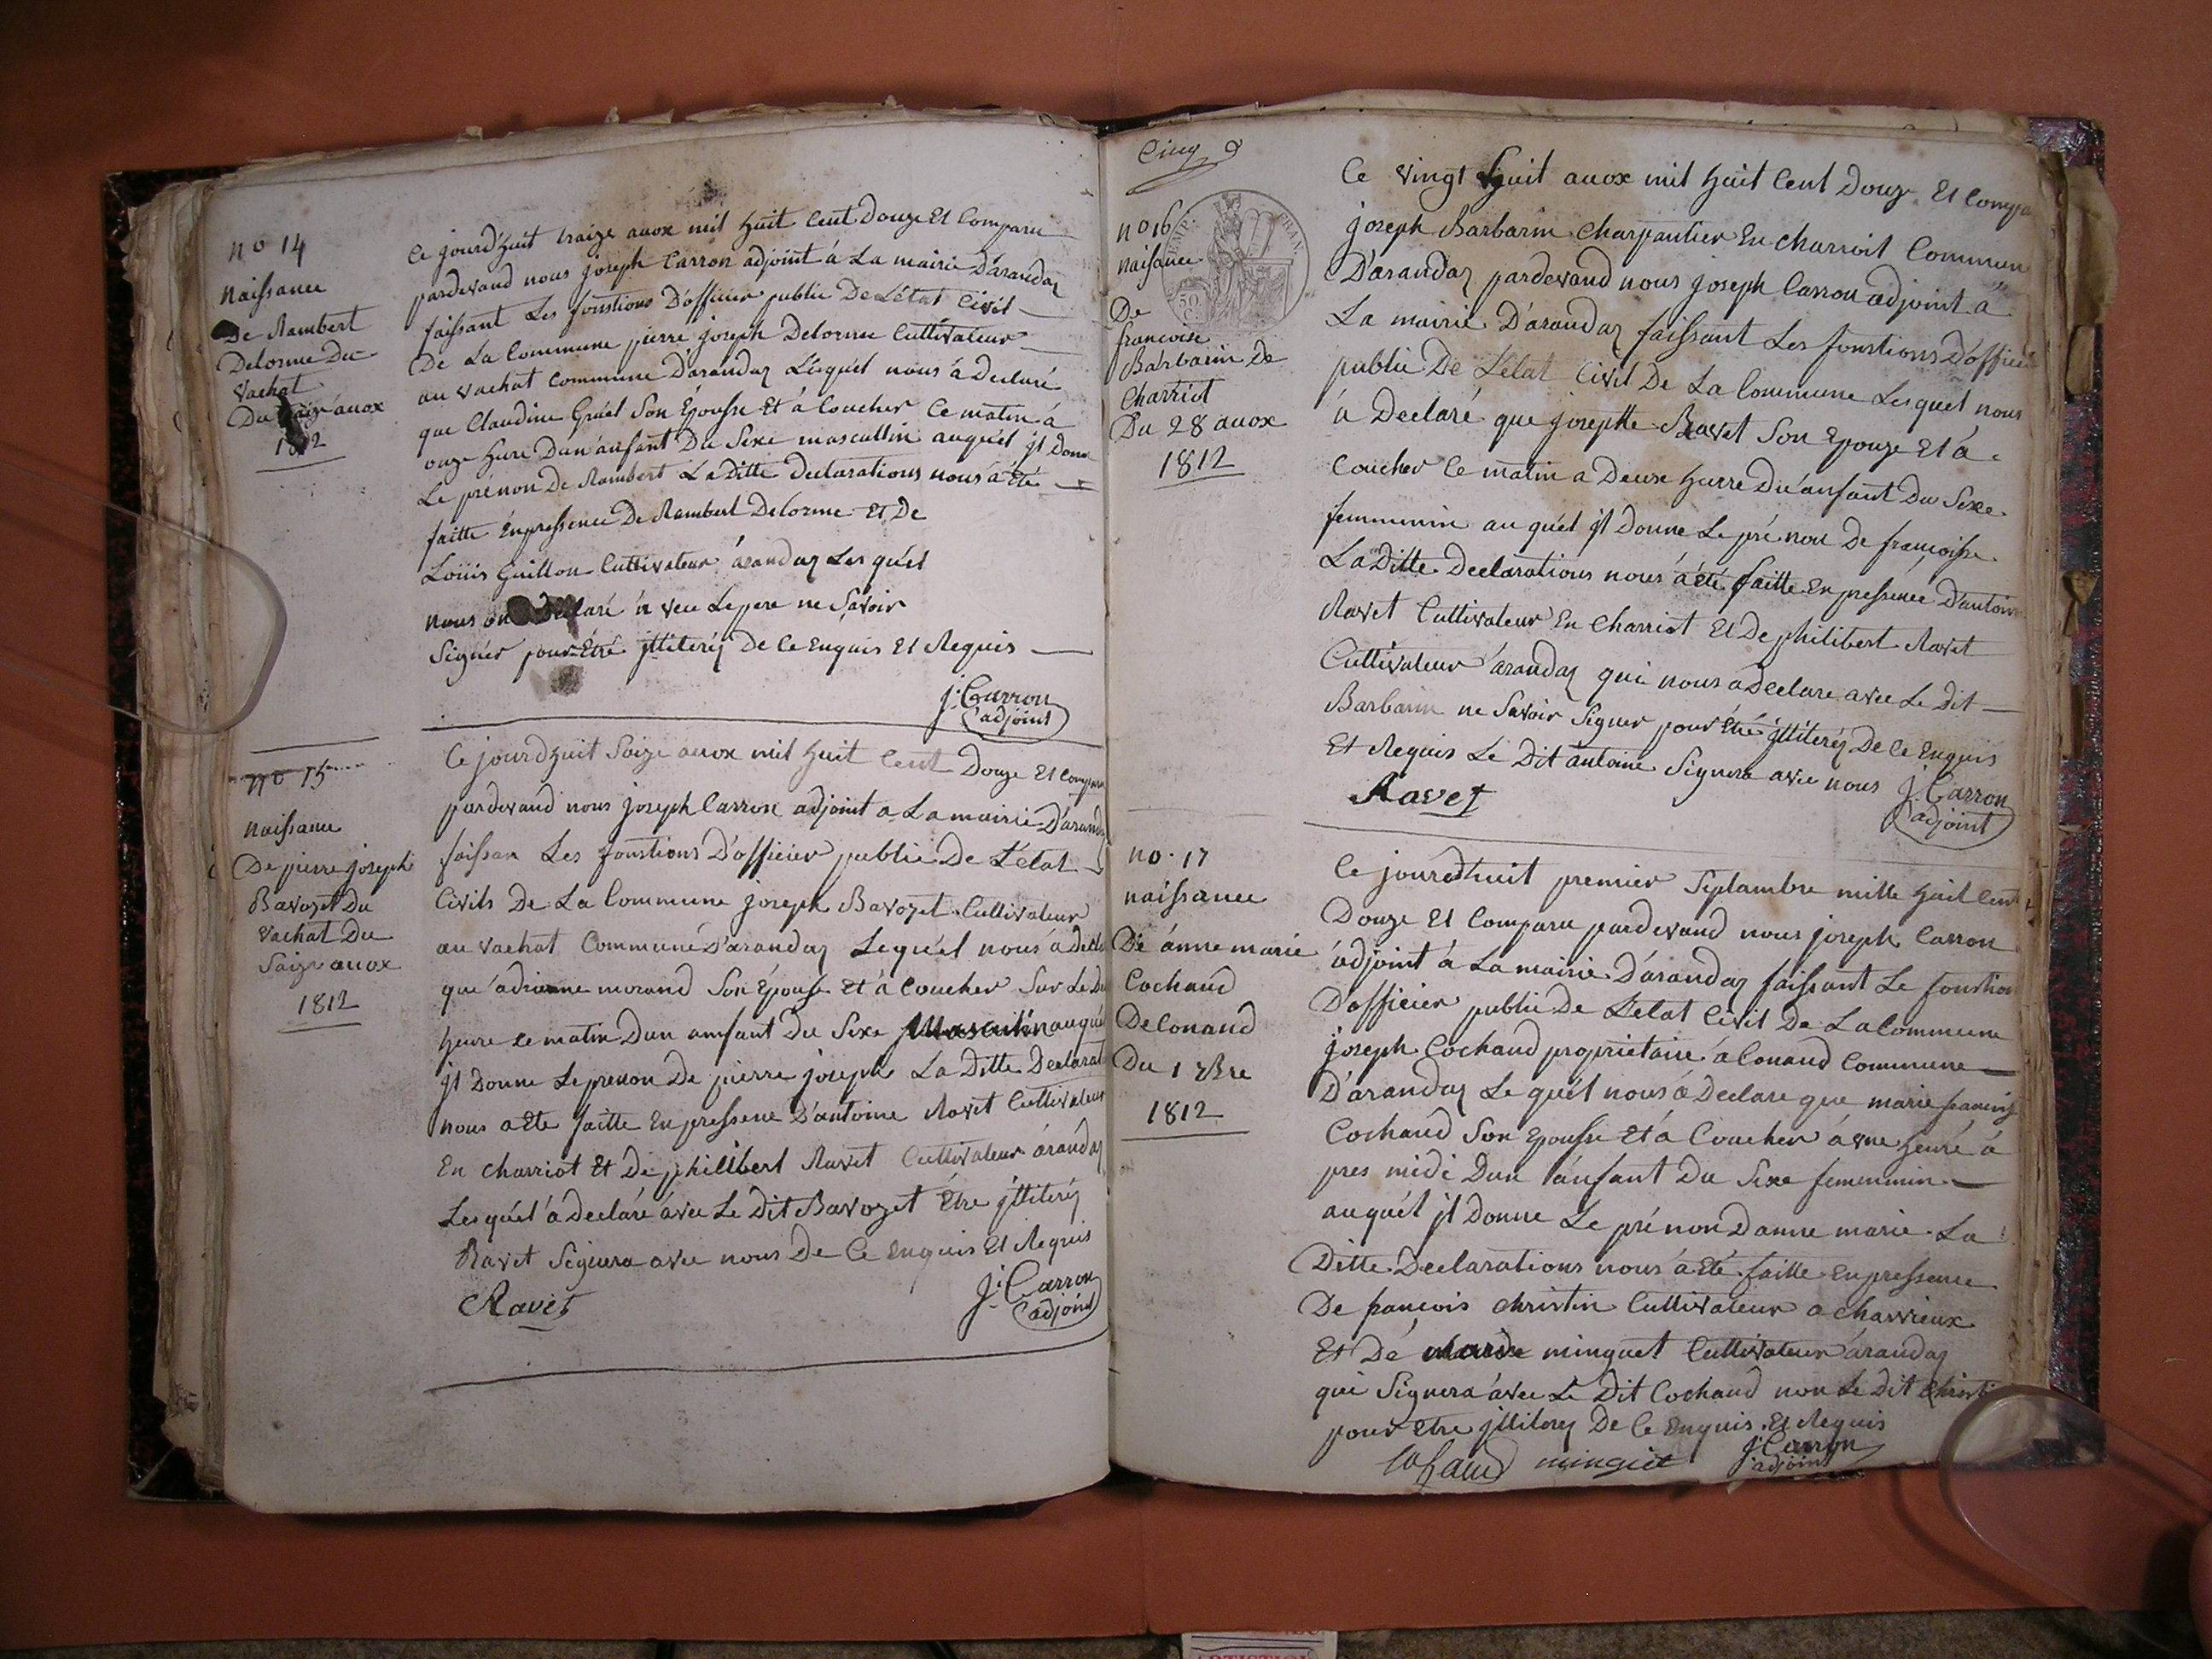 no 14
naissance
De Rambert
Delorme Du
Vachat
Du traize auox
1812
Ce jourd'huit traize auox mil huit Cent Douze Et Comparu
pardevand nous joseph Carron adjoint à La mairie D'arandaz
faissant Les fonstions D'officier public De L'état Civil
De La Commune pierre joseph Delorme Cultivateur
au vachat commune D'arandaz Lesquel nous à Declaré
que Claudine Gruel Son Épousse Et à Coucher Ce matin à
onze hure Dun anfant Du Sexe mascullin auquel jl Donne
Le prénon De Rambert La Ditte Declarations nous à Été
faitte Enpressence De Rambert Delorme Et De
Loüis Guillon Cultivateur àrandaz Les quel
nous on Declaré a vec Lepere ne Savoir
Signer pour Étre jlliteréz De Ce Enquis Et Requis
J. Carron
adjoint
no 15
naissance
De pierre joseph
Bavozet Du
vachat Du
Saize auox
1812
Ce jourd'huit Saize auox mil huit Cent Douze Et Compar
pardevand nous joseph Carron adjoint a La mairie D'aranda
faissan Les fonstions D'officier public De L'état
Civils De La Commune joseph Bavozet Cultivateur
au vachat Commune D'arandaz Lequel nous à Decla
que adrianne morand Son Épouse Et à Coucher Sur Le D
heure ce matin Dun amfant Du Sexe Masculin auquel
jl Donne Le prenon De pierre joseph La Ditte Declarat
nous a Ete faitte Enpressene D'antoine Ravet Cultivateur
En charriot Et De philibert Ravet Cultivateur àrandaz
Lesquel à Declaré avec Le Dit Bavozet Étre jlliteréz
Ravet Signera avec nous De Ce Enquis Et Requis
Ravet
J. Carron
adjoint
Cinq
no 16
naisance
De
francoise
Barbarin De
Charriot
Du 28 auox
1812
Ce vingt huit auox mil huit Cent Douz Et Compa
joseph Barbarin Charpantier En charriot Commune
D'arandaz pardevand nous joseph Carron adjoint à
La mairie D'arandaz faissant Les fonstions D'officier
public De L'état Civil De La Commune Lesquel nous
à Declaré que josephte Ravet Son Epouze Et à
Coucher Ce matin a Deux hurre Du anfant Du Sexe
femminin au quel jl Donne Le pré non De françoisse
La Ditte Declarations nous à été faitte En pressence D'antoine
Ravet Cultivateur En Charriot Et De philibert Ravet
Cultivateur arandaz qui nous a Declare avec Le Dit
Barbarin ne Savoir Signer pour Étre jlliteréz De Ce Enquis
Et Requis Le Dit antoine Signera avec nous
Ravet
J. Carron
adjoint
no. 17
naissance
De anne marie
Cochaud
De Conand
Du 1 7bre
1812
Ce jourdhuit premier Septambre mille huit Cent
Douze Et Comparu pardevand nous joseph Carron
adjoint à La mairie D'arandaz faissant Le fonstion
D'officier public De L'état Civil De La Commune
joseph Cochaud proprietaire a Conand Commune
D'arandaz Le quel nous à Declare que marie
Cochaud Son Epousse Et à Coucher à vne heure à
pres midi Dun anfant Du Sexe femminin
auquel jl Donne Le pré non D'anne marie La
Ditte Declarations nous à Été faitte Enpressence
De francois christin Cultivateur a charvieux
Et De minguet Cultivateur arandaz
qui Signera avec Le Dit Cochaud non Le Dit christi
pour Etre jlliterez De Ce Enquis Et Requis
Cochaud minguet J. Carron
adjoint